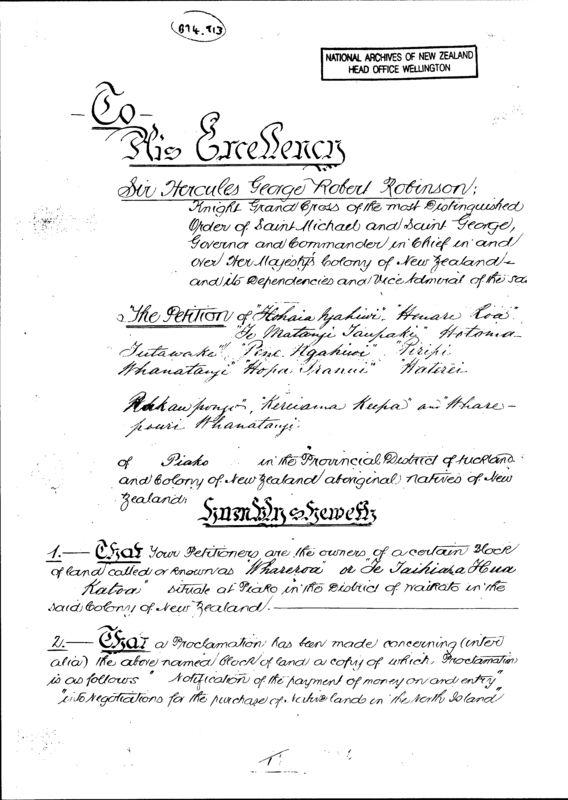 674.713
NATIONAL ARCHIVES OF NEW ZEALAND
HEAD OFFICE WELLINGTON
To
His Excellency
Sir Hercules George Robert Robinson;
Knight Grand Cross of the most Distinguished
Order of Saint Michael and Saint George,
Governor and Commander in Chief in and
over Her Majesty's Colony of New Zealand
and its Dependencies and Vice Admiral of the sa
The Petition of "Hohaia Ngahiwi" "Henare Roa"
"Te Matangi Taupaki" Hotoma
Tutawake" "Pine Ngahiwi" "Piripi
Whanatangi" "Hopa Iranui" "Haterei
"Kereama Keepa" and "Whare-
pouri Whanatangi
of Piako in the Provincial District of Auckland
and Colony of New Zealand aboriginal natives of New
Zealand:
Humbly sheweth
1.— That Your Petitioners are the owners of a certain Block
of land called or known as "Whareroa" or "Te Taihiaza Hua
Katoa" situate at Piako in the District of Waikato in the
said Colony of New Zealand.
2.— That a Proclamation has been made concerning (inter
alia) the above named block of land a copy of which Proclamation
is as follows " Notification of the payment of money on and entry"
"into Negotiations for the purchase of Native lands in the North Island"